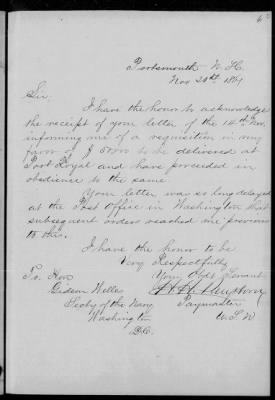 6
Portsmouth N. H.
Nov 20th 1861
Sir.
I have the honor to acknowledge
the receipt of your letter of the 14th Nov.
informing me of a requisition in my
favor of $ 5000 to be delivered at
Port Royal and have proceeded in
obedience to the same.
Your letter was so long delayed
at the Post Office in Washington that
subsequent orders reached me previous
to this.
I have the honor to be
Very Respectfully
To. Hon Your Obdt Servant
Gideon Welles H. H.
Secty of the Navy Paymaster
Washington U. S. N
D.C.